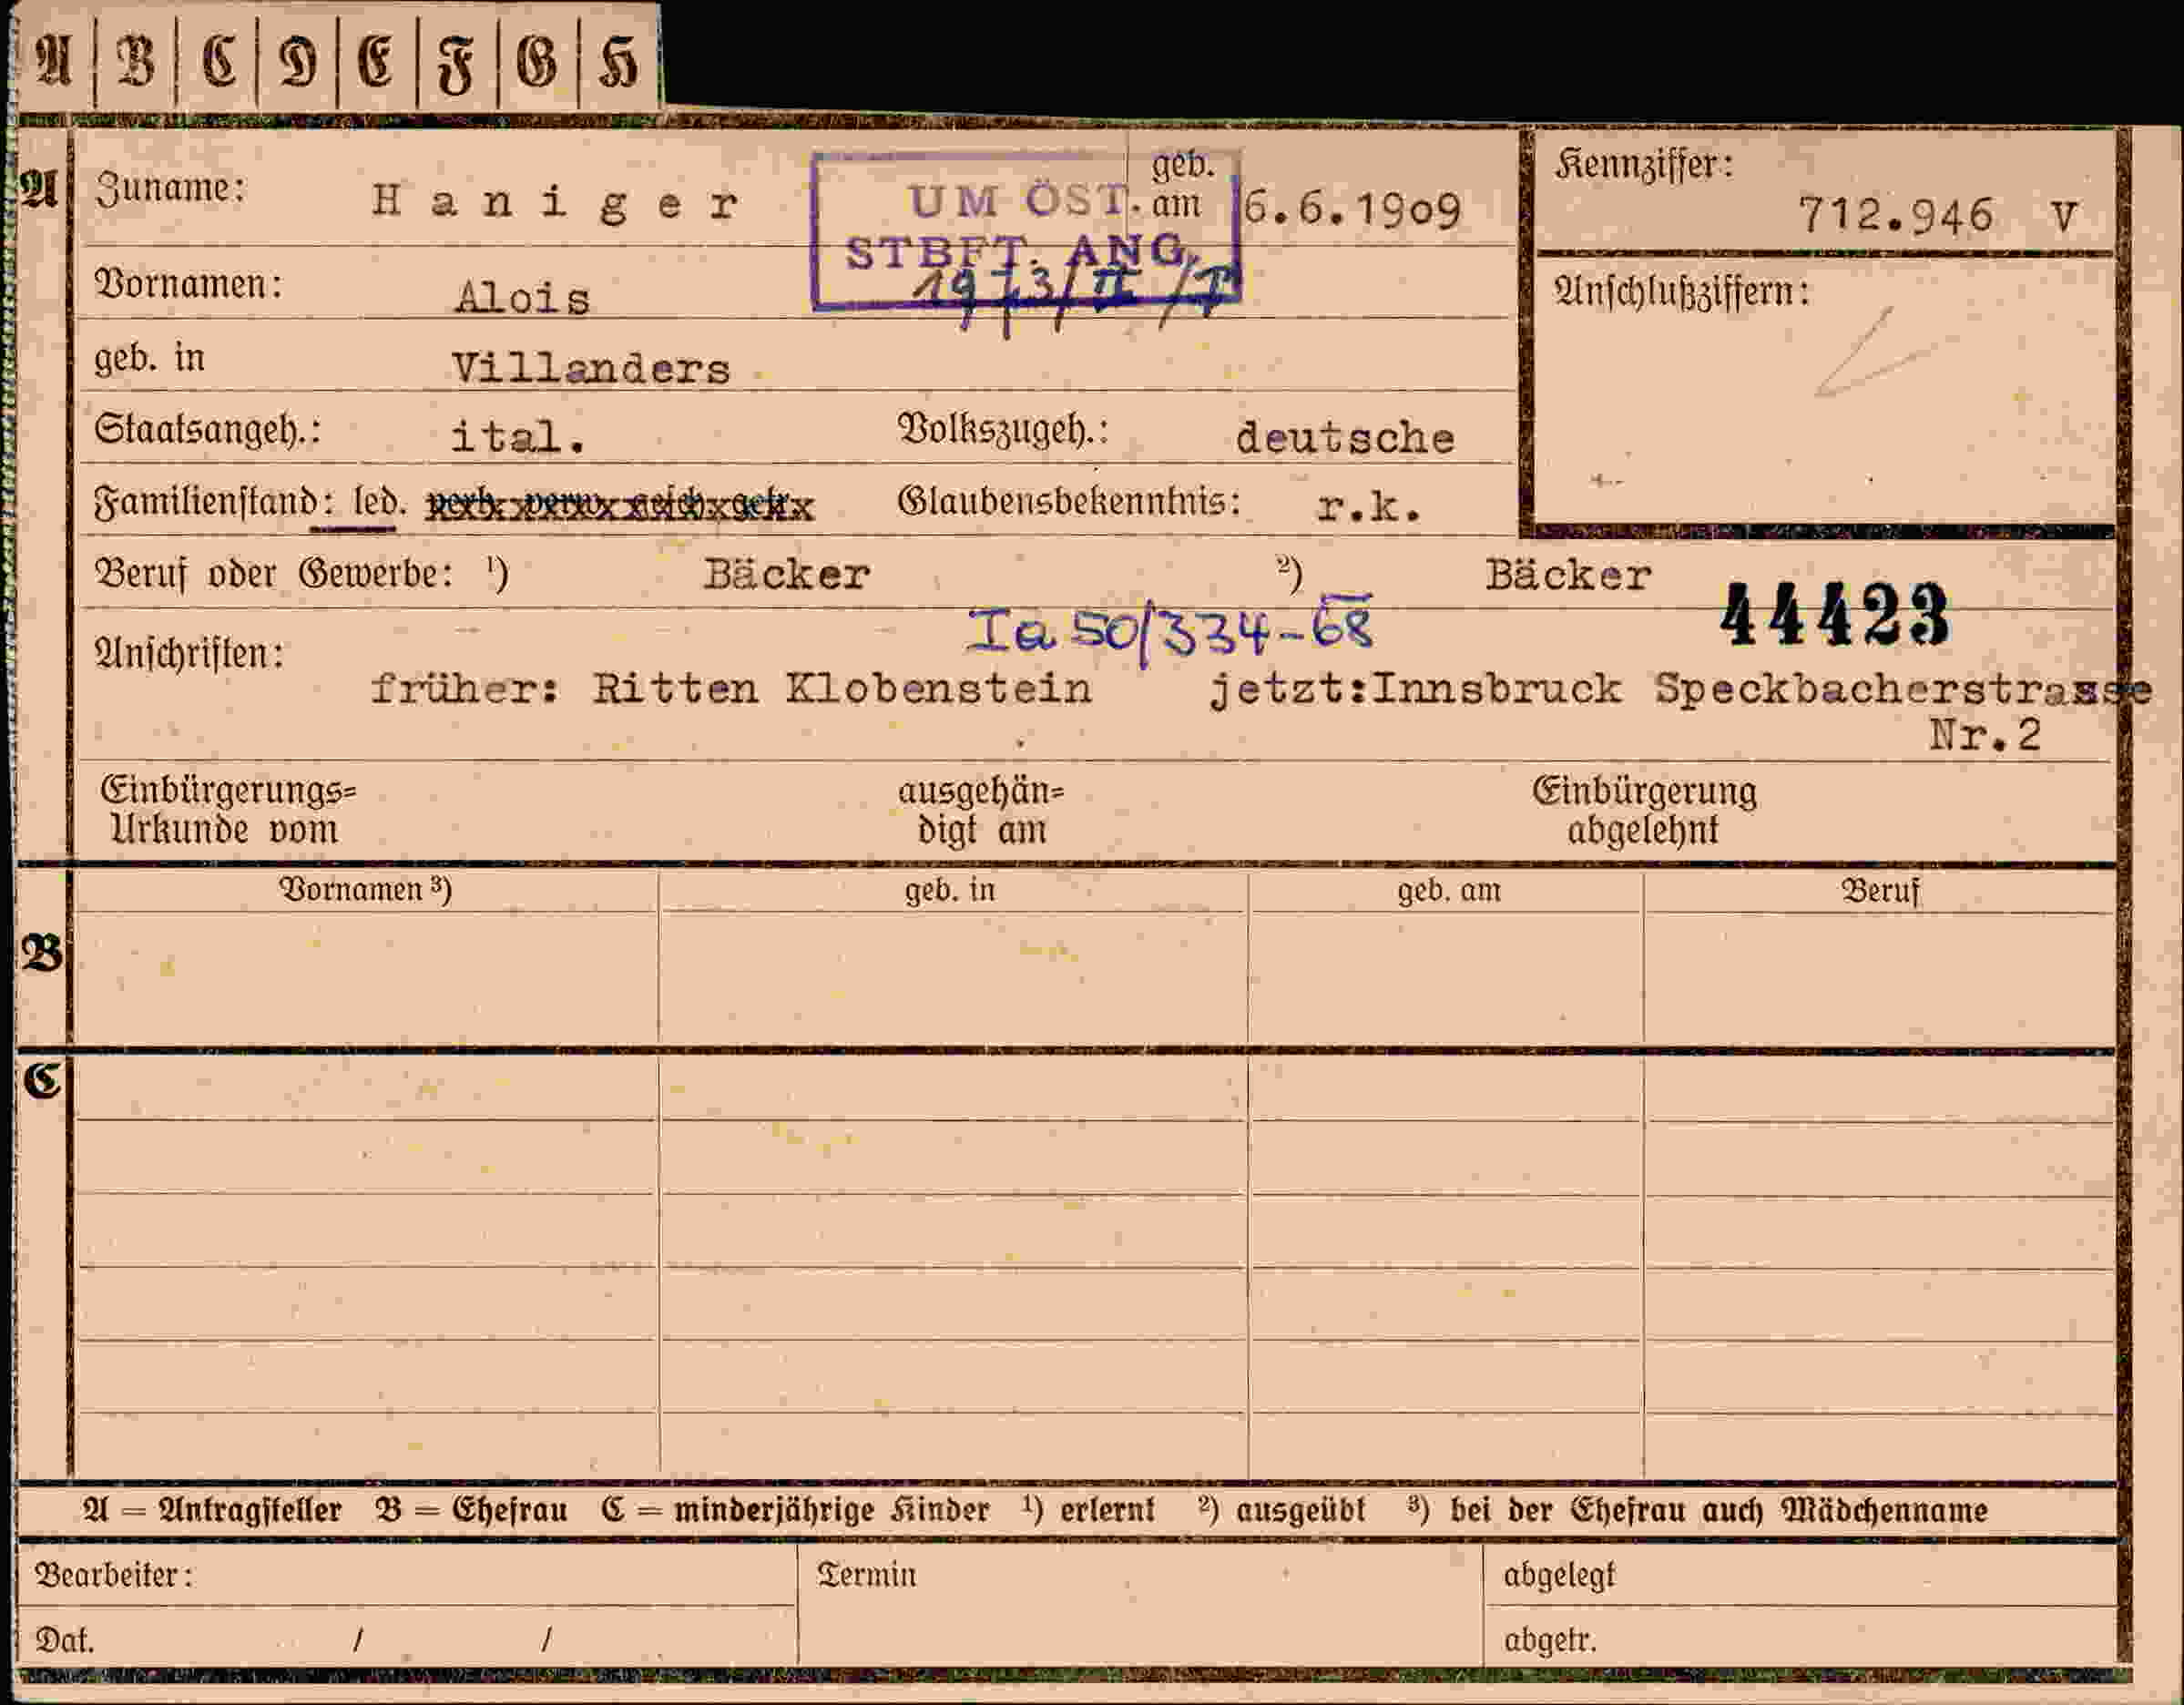 A B C D E F G H
A Zuname: Haniger geb. am 6.6.1909 Kennziffer: 712.946 V
UM ÖST.
STBFT. ANG.
1973/II/
Vornamen: Alois Anschlußziffern:
geb. in Villanders
Staatsangeh.: ital. Volkszugeh.: deutsche
Familienstand: led. Glaubensbekenntnis: r.k.
Beruf oder Gewerbe: ¹) Bäcker ²) Bäcker
Ia 50/334-68 44423
Anschriften:
früher: Ritten Klobenstein jetzt:Innsbruck Speckbacherstrasse
Nr.2
Einbürgerungs= ausgehän= Einbürgerung
Urkunde vom digt am abgelehnt
Vornamen ³) geb. in geb. am Beruf
B
C
A = Antragsteller B = Ehefrau C = minderjährige Kinder ¹) erlernt ²) ausgeübt ³) bei der Ehefrau auch Mädchenname
Bearbeiter: Termin abgelegt
Dat. / / abgetr.